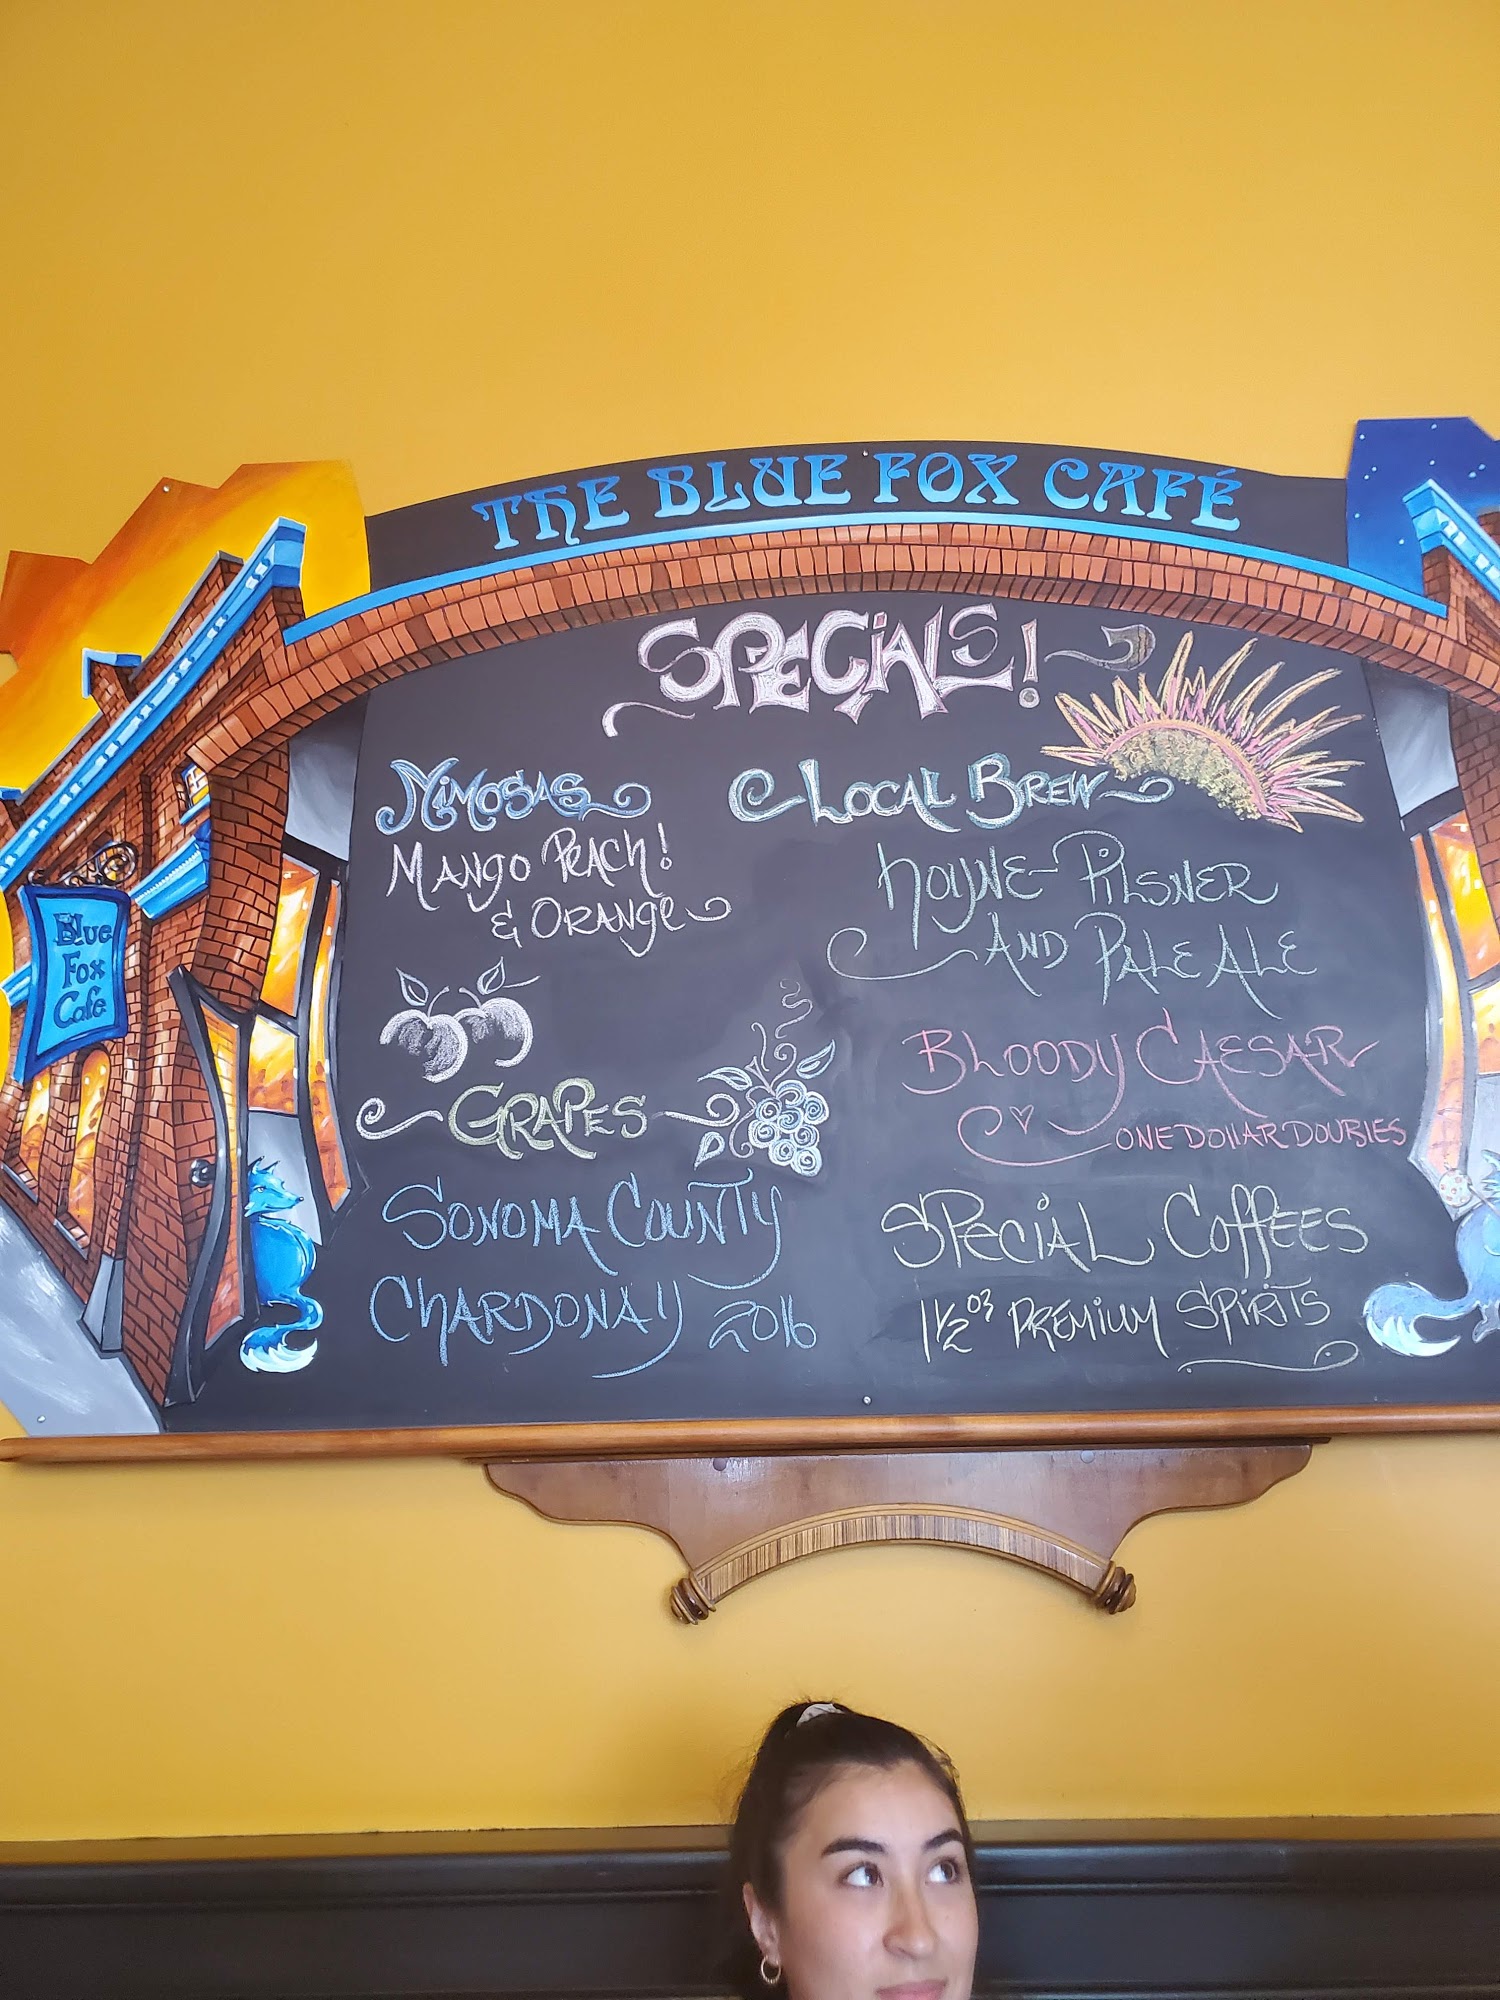 THE BLUE FOX CAFÉ
SPECIALS!
Blue
Fox
Cafe
MIMOSAS
MANGO PEACH!
& ORANGE
GRAPES
SONOMA COUNTY
CHARDONAY 2016
LOCAL BREW
HOYNE-PILSNER
AND PALE ALE
BLOODY CAESAR
ONE DOLLAR DOUBLES
SPECIAL COFFEES
1 1/2 OZ PREMIUM SPIRITS